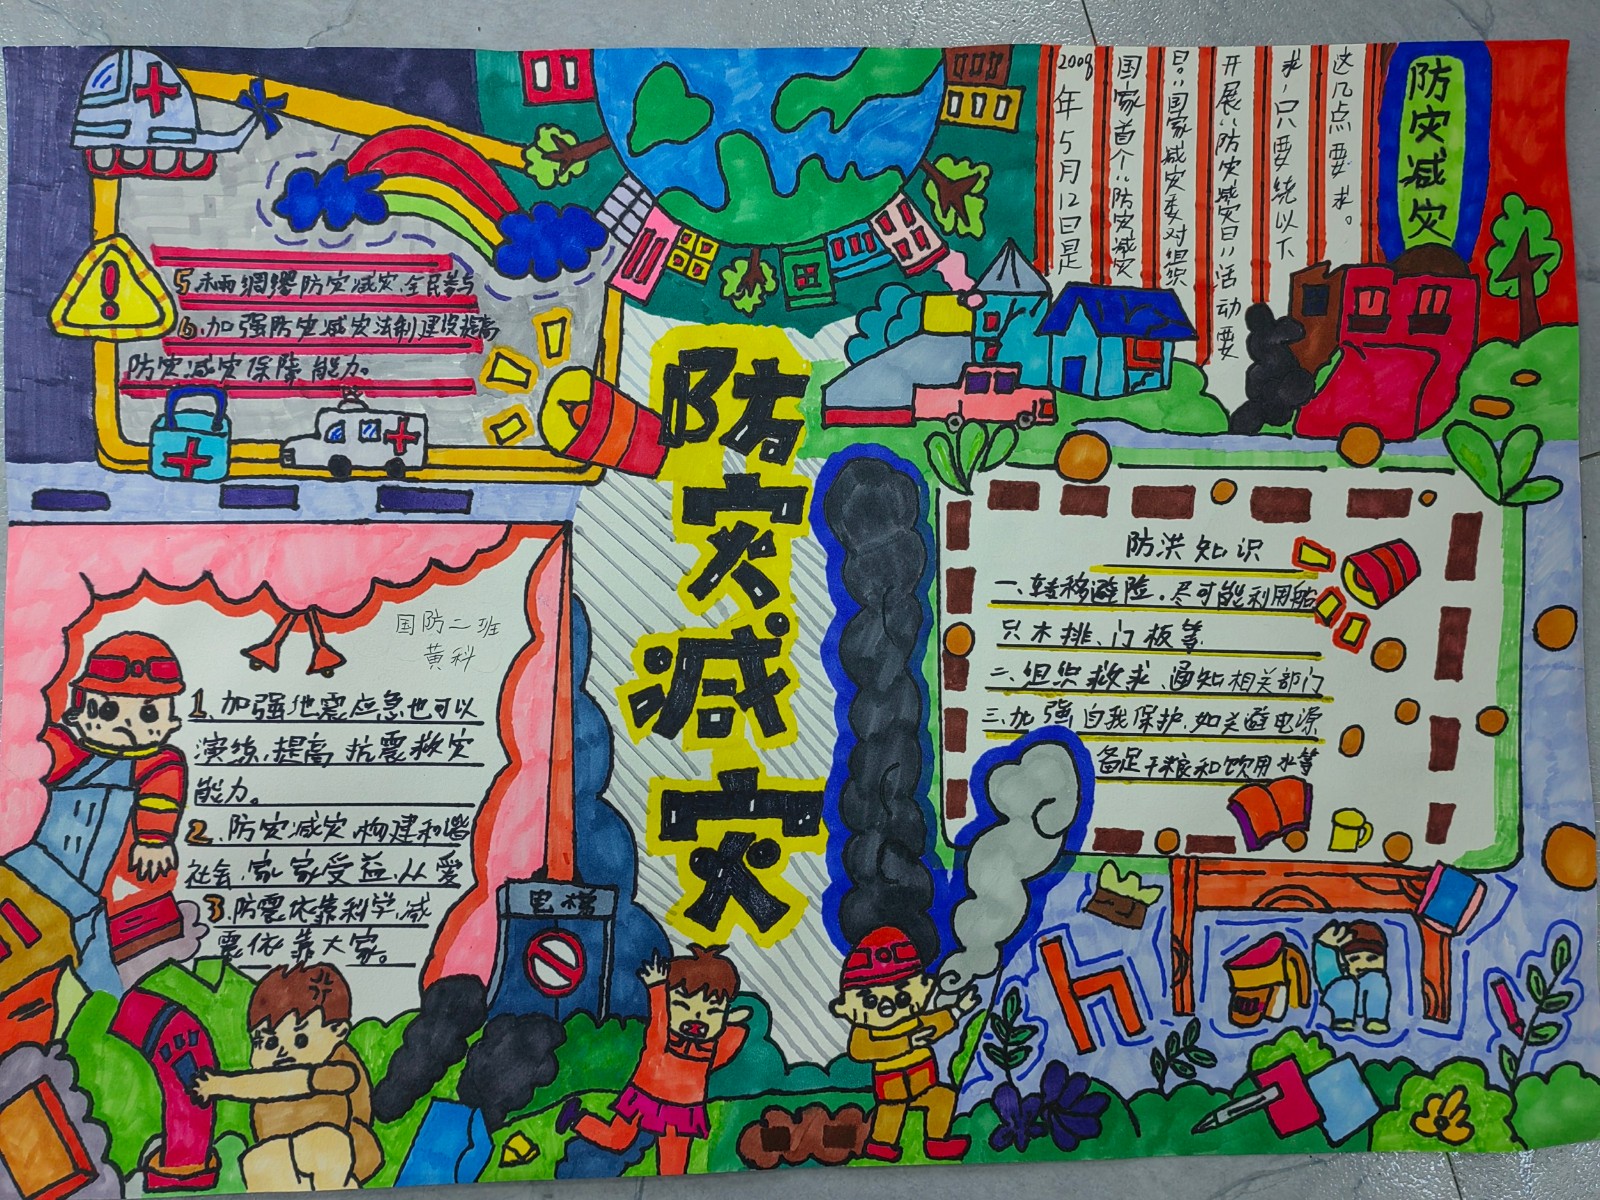 防灾减灾
2008年5月12日是
国家首个“防灾减灾
日”国家减灾委对组织
开展“防灾减灾日”活动要
求，只要绕以下
这几点要求。
5 未雨绸缪防灾减灾，全民参与
6、加强防灾减灾法制建设提高
防灾减灾保障能力。
防灾减灾
国防二班
黄科
1、加强地震应急也可以
演练，提高抗震救灾
能力。
2、防灾减灾，构建和谐
社会，家家受益，从爱
3、防震依靠科学，减
震依靠大家。
电梯
防洪知识
一、转移避险，尽可能利用船
只木排、门板等
二、组织救求、通知相关部门
三、加强自我保护，如关避电源
备足干粮和饮用水等